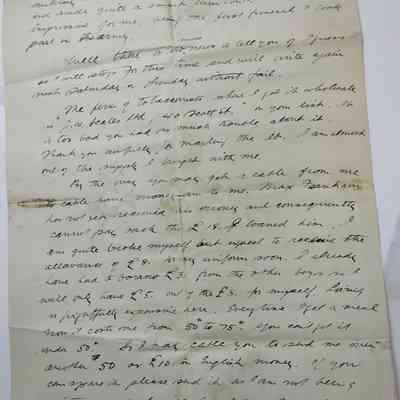 and made quite a
improvised for me, being the first
part in the army.
Well there is no news to tell you of
so I will stop for this time and will write again
next Saturday or Sunday without fail.
The firm of Tobacconists where I get it wholesale
is "J. W. Scales Ltd, 40 Scott St." in your
is too bad you had so much trouble about it.
Thank you awfully for mailing the lb. I am almost
out of the supply I brought with me.
By the way you may get a cable from me
to cable some money on to me. Max
has not yet received his money and consequently
cannot pay me the £18. I loaned him. I
am quite broke myself but expect to receive the
allowance of £8. for my uniform soon. I already
have had to borrow £3. from the other boys so I
will only have £5. out of the £8. for myself. Living
is frightfully expensive here. Everytime I get a meal
now it costs me from 50¢ to 75¢. You can't get it
under 50¢. So I may cable you to send me over
another $50 or £10 in English money. If you
can spare it please send it as I am not being